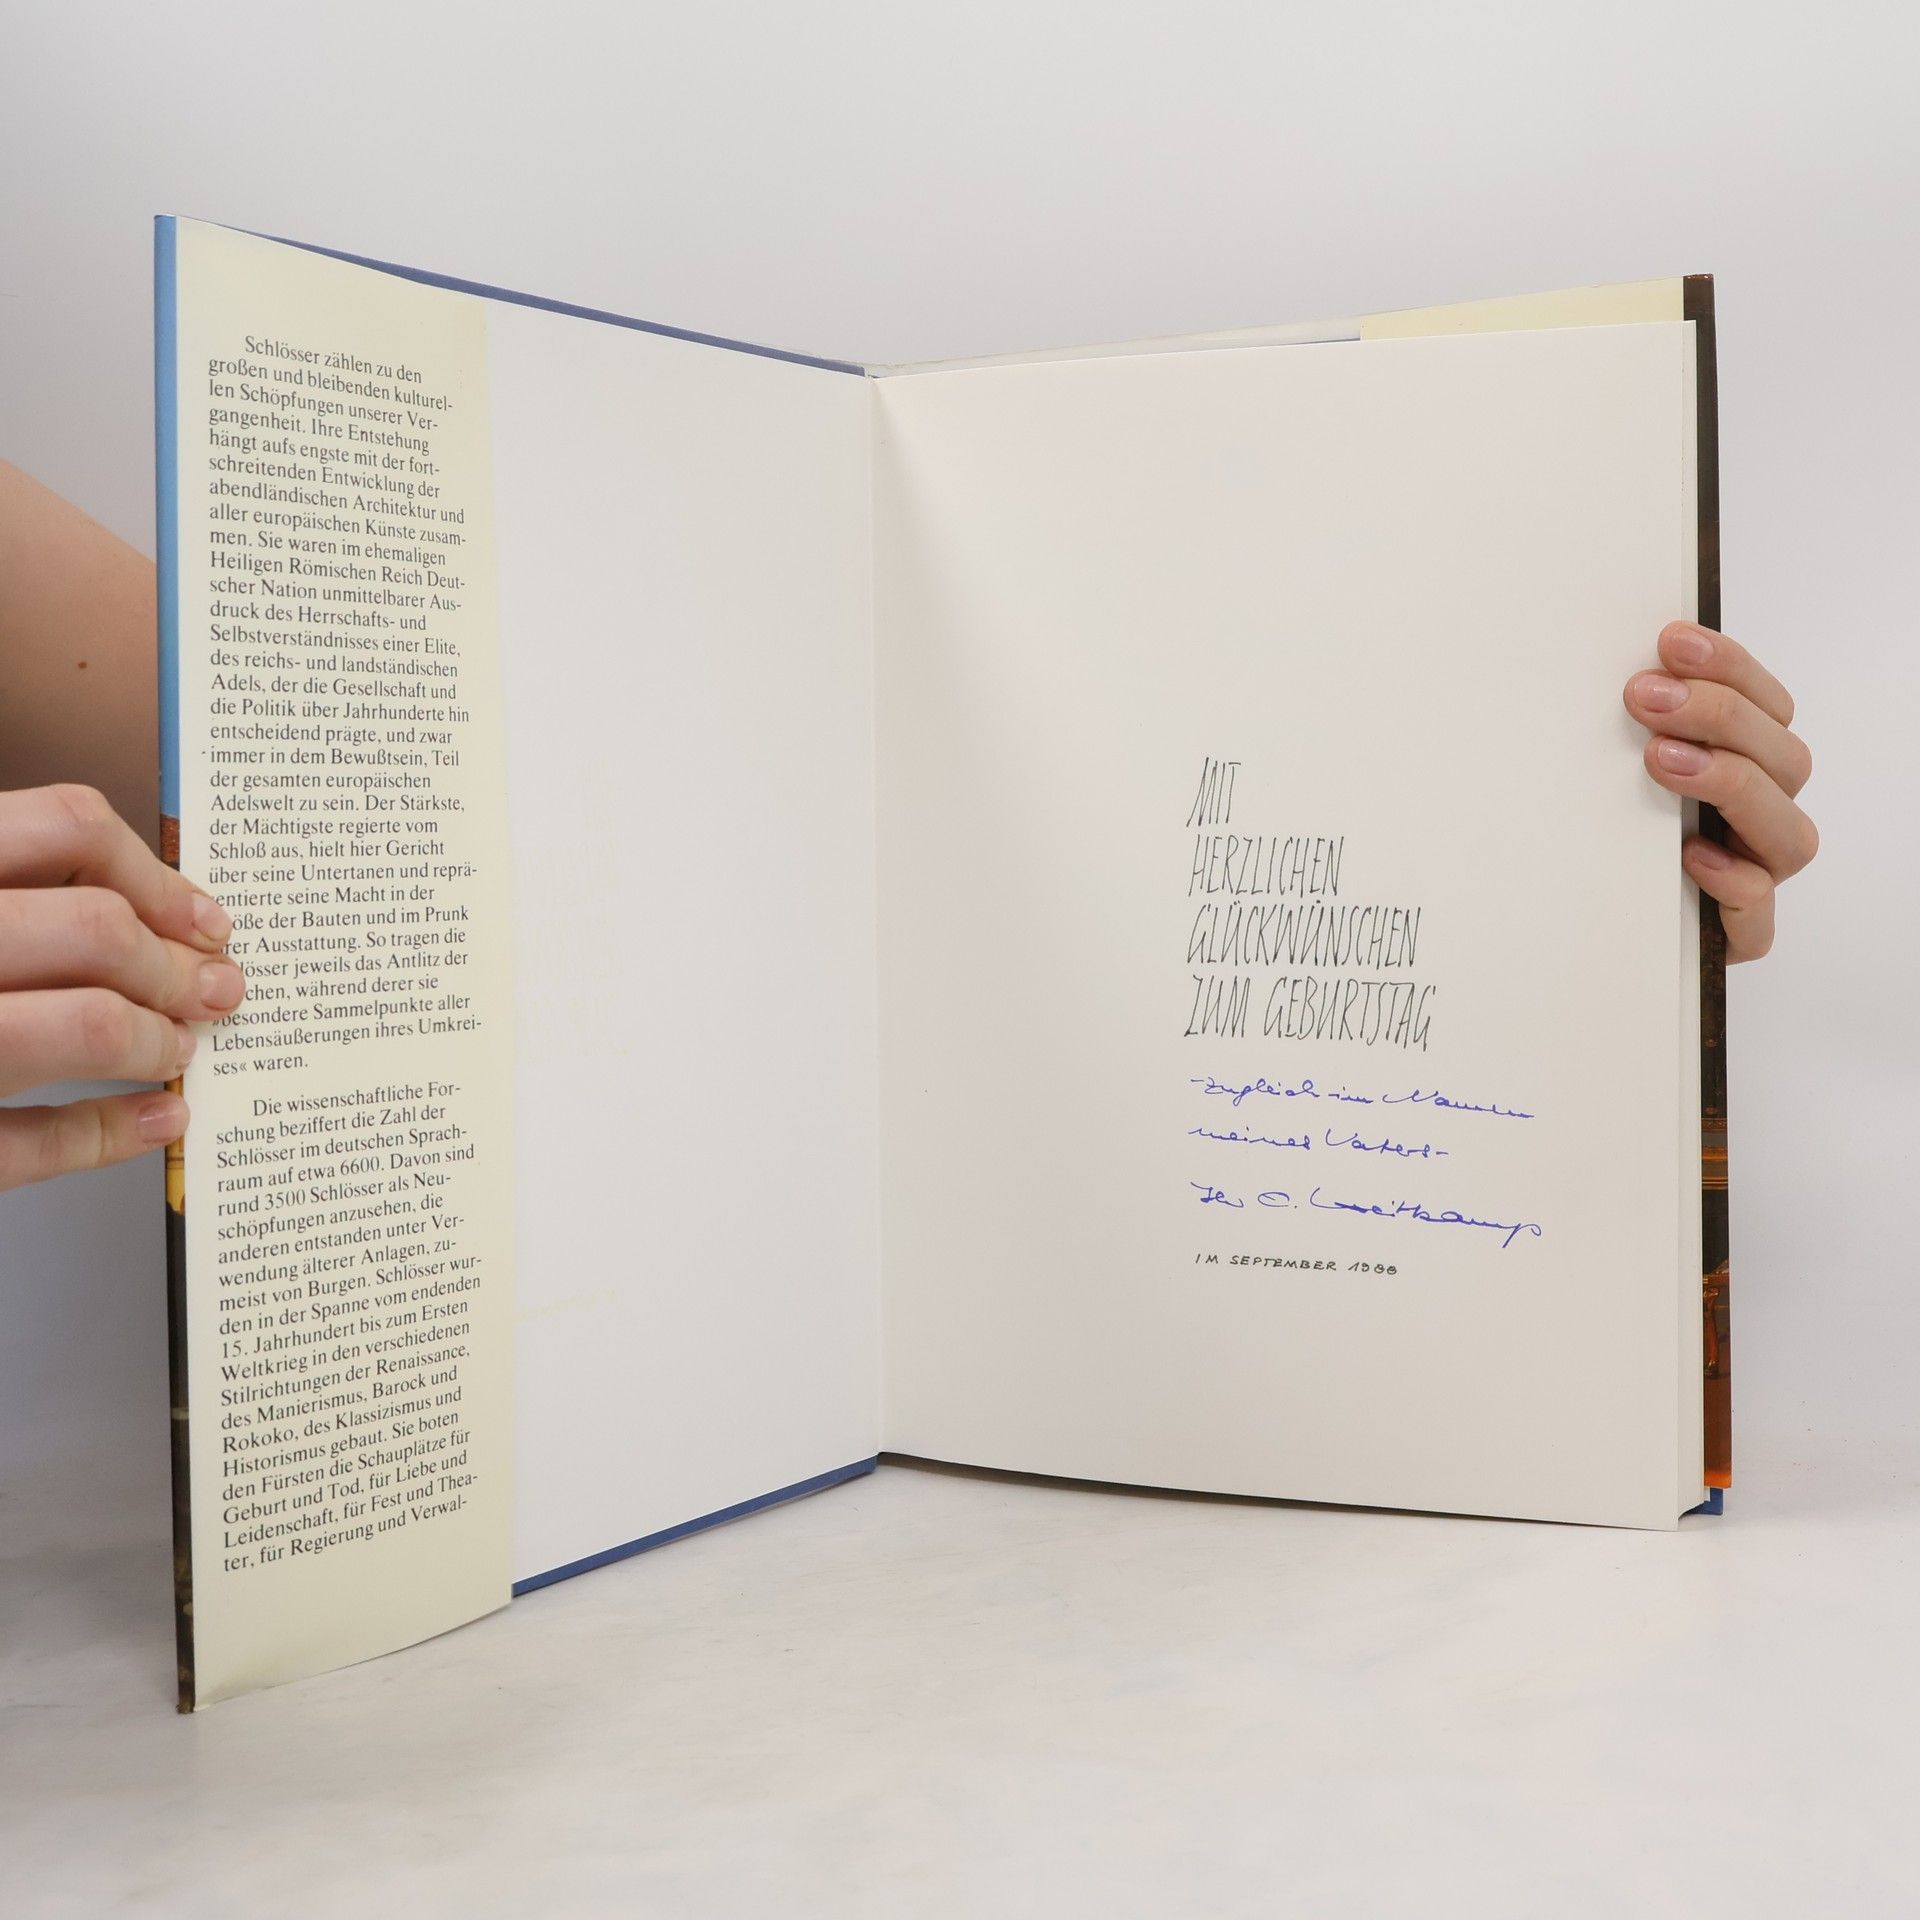 Schlösser zählen zu den
großen und bleibenden kulturel-
len Schöpfungen unserer Ver-
gangenheit. Ihre Entstehung
hängt aufs engste mit der fort-
schreitenden Entwicklung der
abendländischen Architektur und
aller europäischen Künste zusam-
men. Sie waren im ehemaligen
Heiligen Römischen Reich Deut-
scher Nation unmittelbarer Aus-
druck des Herrschafts- und
Selbstverständnisses einer Elite,
des reichs- und landständischen
Adels, der die Gesellschaft und
die Politik über Jahrhunderte hin
entscheidend prägte, und zwar
immer in dem Bewußtsein, Teil
der gesamten europäischen
Adelswelt zu sein. Der Stärkste,
der Mächtigste regierte vom
Schloß aus, hielt hier Gericht
über seine Untertanen und reprä-
entierte seine Macht in der
öße der Bauten und im Prunk
rer Ausstattung. So tragen die
lösser jeweils das Antlitz der
chen, während derer sie
»besondere Sammelpunkte aller
Lebensäußerungen ihres Umkrei-
ses« waren.
Die wissenschaftliche For-
schung beziffert die Zahl der
Schlösser im deutschen Sprach-
raum auf etwa 6600. Davon sind
rund 3500 Schlösser als Neu-
schöpfungen anzusehen, die
anderen entstanden unter Ver-
wendung älterer Anlagen, zu-
meist von Burgen. Schlösser wur-
den in der Spanne vom endenden
15. Jahrhundert bis zum Ersten
Weltkrieg in den verschiedenen
Stilrichtungen der Renaissance,
des Manierismus, Barock und
Rokoko, des Klassizismus und
Historismus gebaut. Sie boten
den Fürsten die Schauplätze für
Geburt und Tod, für Liebe und
Leidenschaft, für Fest und Thea-
ter, für Regierung und Verwal-
MIT
HERZLICHEN
GLÜCKWÜNSCHEN
ZUM GEBURTSTAG
-zugleich im Namen
meines Vaters-
Ihr C. Weitkamp
IM SEPTEMBER 1988